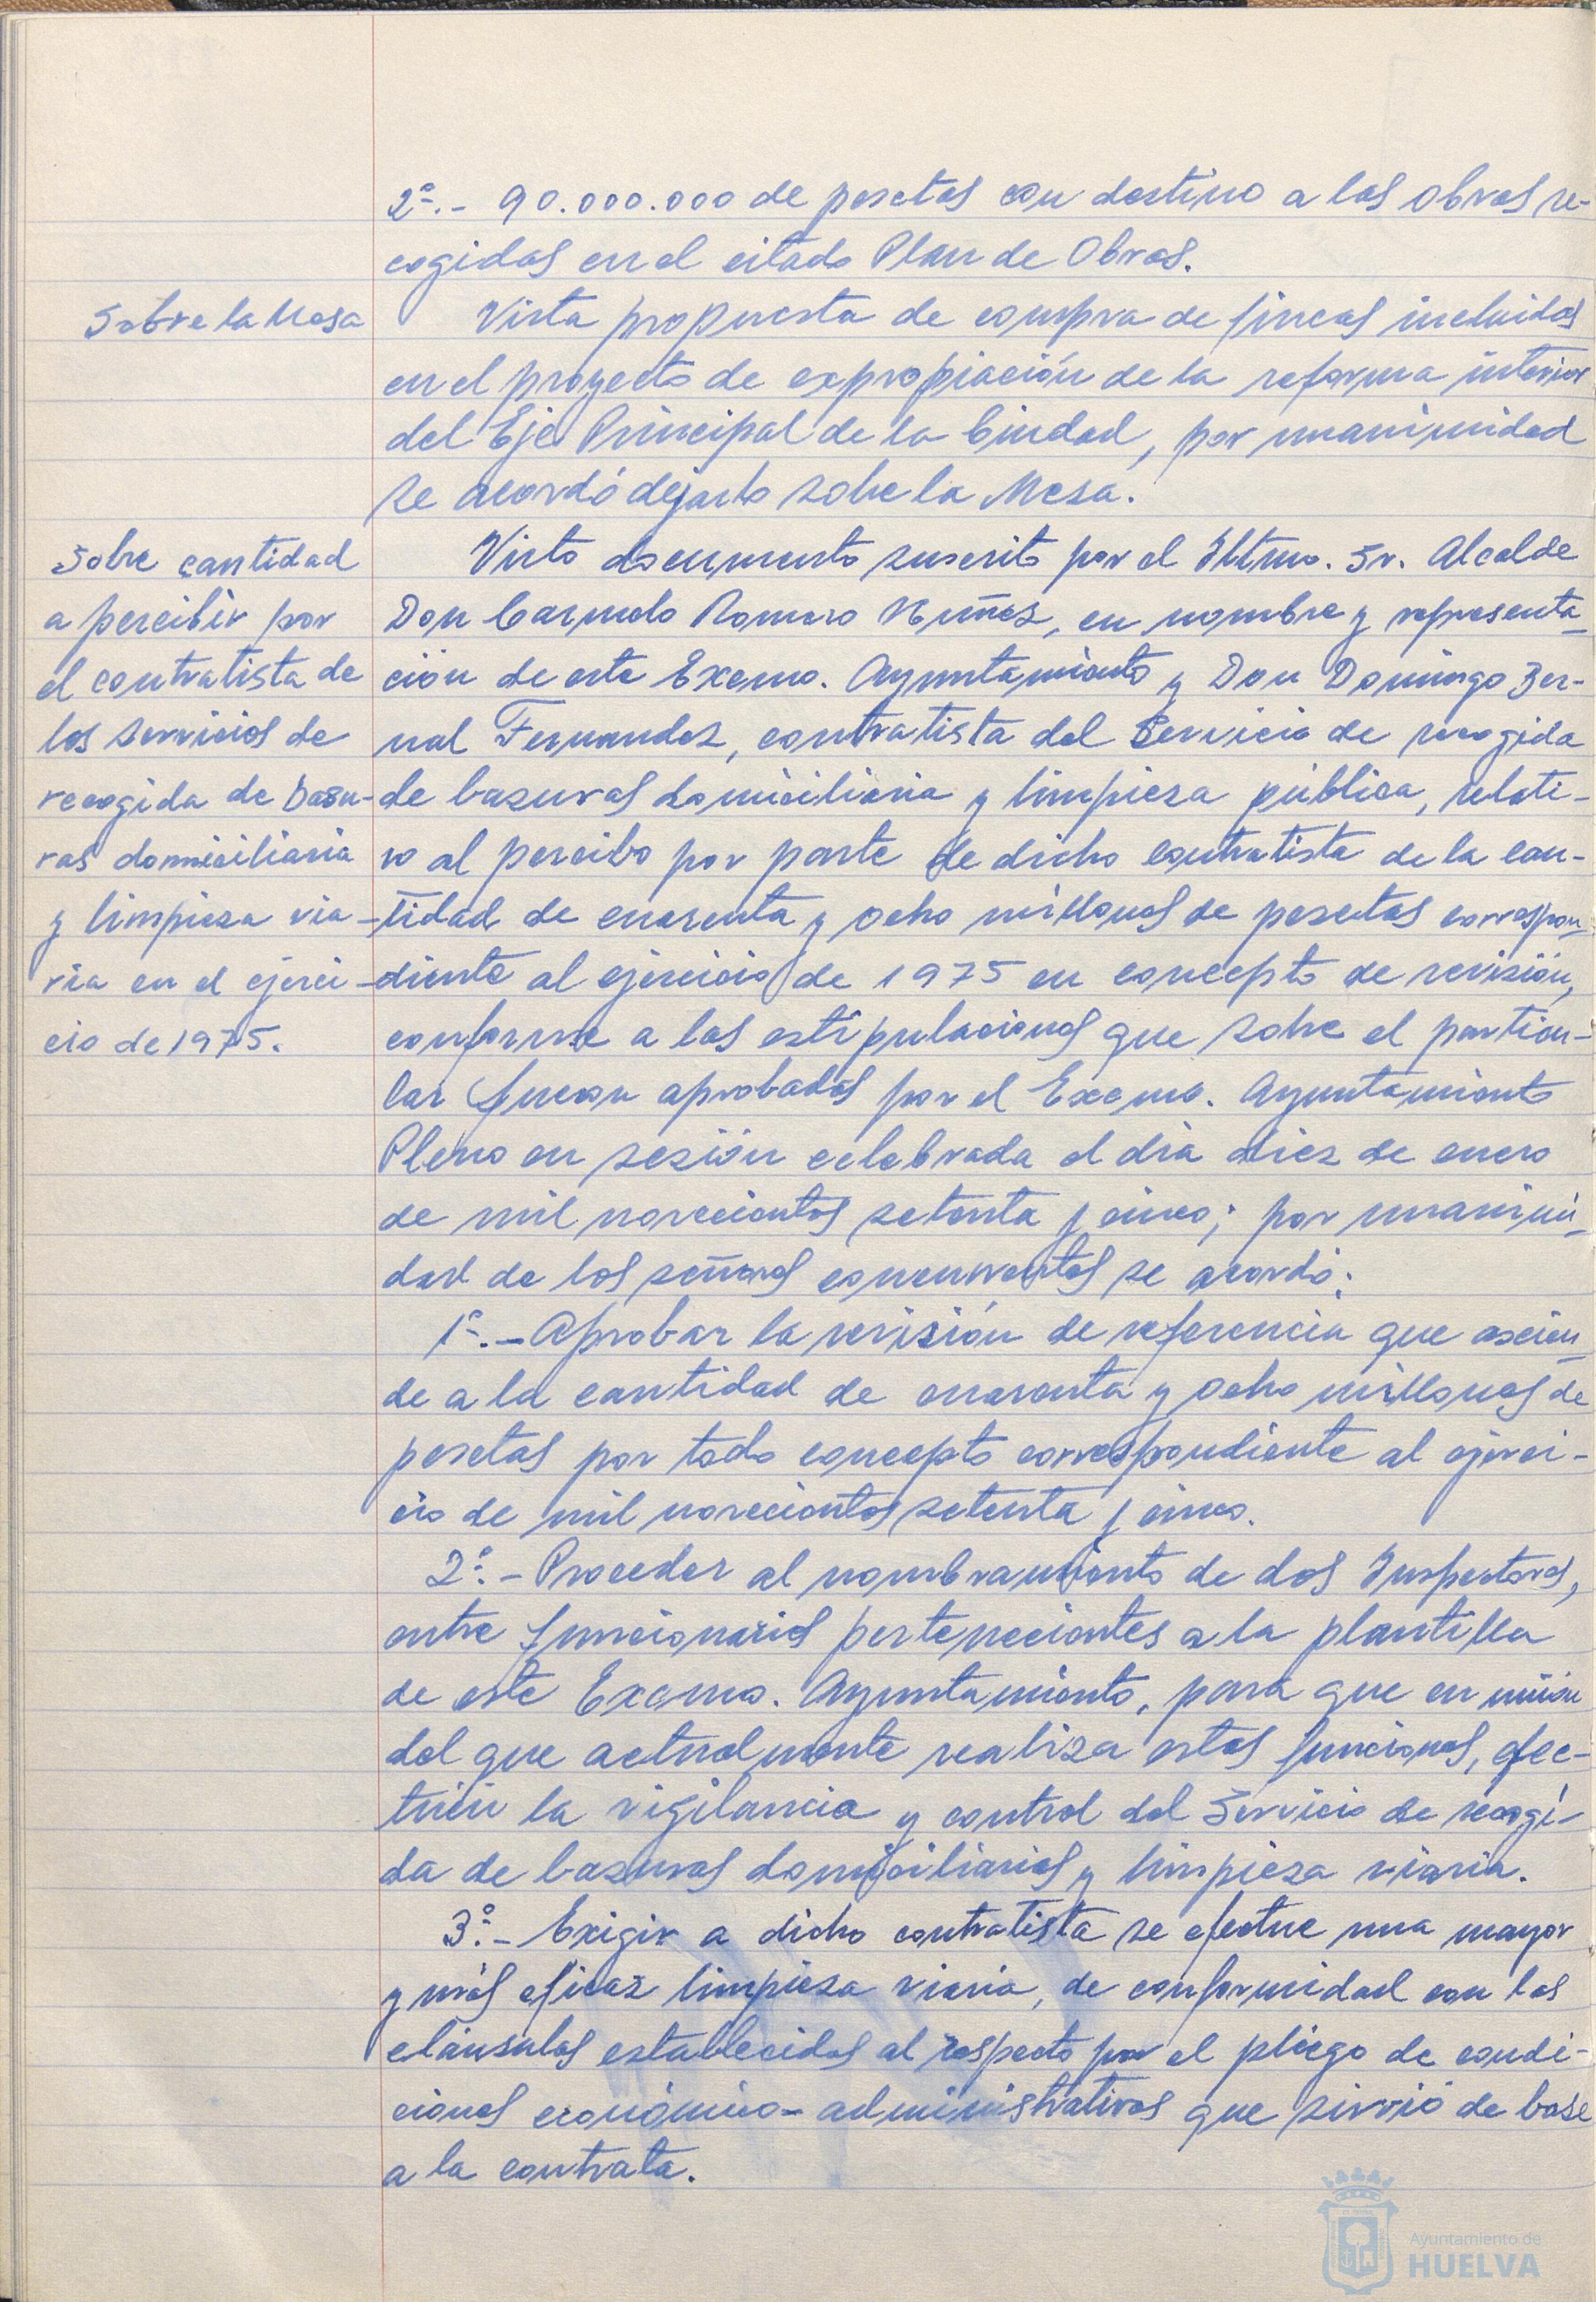 2º.- 90.000.000 de pesetas con destino a las obras re-
cogidas en el citado Plan de Obras.
Sobre la Mesa
Vista propuesta de compra de fincas incluidas
en el proyecto de expropiación de la reforma interior
del Eje Principal de la Ciudad, por unanimidad
se acordó dejarlo sobre la Mesa.
Sobre cantidad
a percibir por
el contratista de
los servicios de
recogida de basu-
ras domiciliaria
y limpieza via-
ria en el ejerci-
cio de 1975.
Visto documento suscrito por el Iltmo. Sr. Alcalde
Don Carmelo Romero Núñez, en nombre y representa-
ción de este Excmo. Ayuntamiento y Don Domingo Ber-
nal Fernandez, contratista del Servicio de recogida
de basuras domiciliaria y limpieza pública, relati-
vo al percibo por parte de dicho contratista de la can-
tidad de cuarenta y ocho millones de pesetas correspon-
diente al ejercicio de 1975 en concepto de revisión,
conforme a las estipulaciones que sobre el particu-
lar fueron aprobadas por el Excmo. Ayuntamiento
Pleno en sesión celebrada el día diez de enero
de mil novecientos setenta y cinco; por unanimi-
dad de los señores concurrentes se acordó:
1º.- Aprobar la revisión de referencia que ascien-
de a la cantidad de cuarenta y ocho millones de
pesetas por todo concepto correspondiente al ejerci-
cio de mil novecientos setenta y cinco.
2º.- Proceder al nombramiento de dos Inspectores,
entre funcionarios pertenecientes a la plantilla
de este Excmo. Ayuntamiento, para que en unión
del que actualmente realiza estas funciones, efec-
túen la vigilancia y control del Servicio de recogi-
da de basuras domiciliarias y limpieza viaria.
3º.- Exigir a dicho contratista se efectue una mayor
y más eficaz limpieza viaria, de conformidad con las
cláusulas establecidas al respecto por el pliego de condi-
ciones económico-administrativas que sirvió de base
a la contrata.
Ayuntamiento de
HUELVA